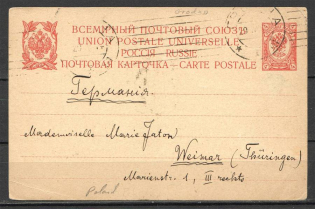 ВСЕМИРНЫЙ ПОЧТОВЫЙ СОЮЗЪ
UNION POSTALE UNIVERSELLE
РОССІЯ RUSSIE
ПОЧТОВАЯ КАРТОЧКА – CARTE POSTALE
Германія
Mademoiselle Marie Jaton
Weimar (Thüringen)
Marienstr. 1, III rechts
Poland